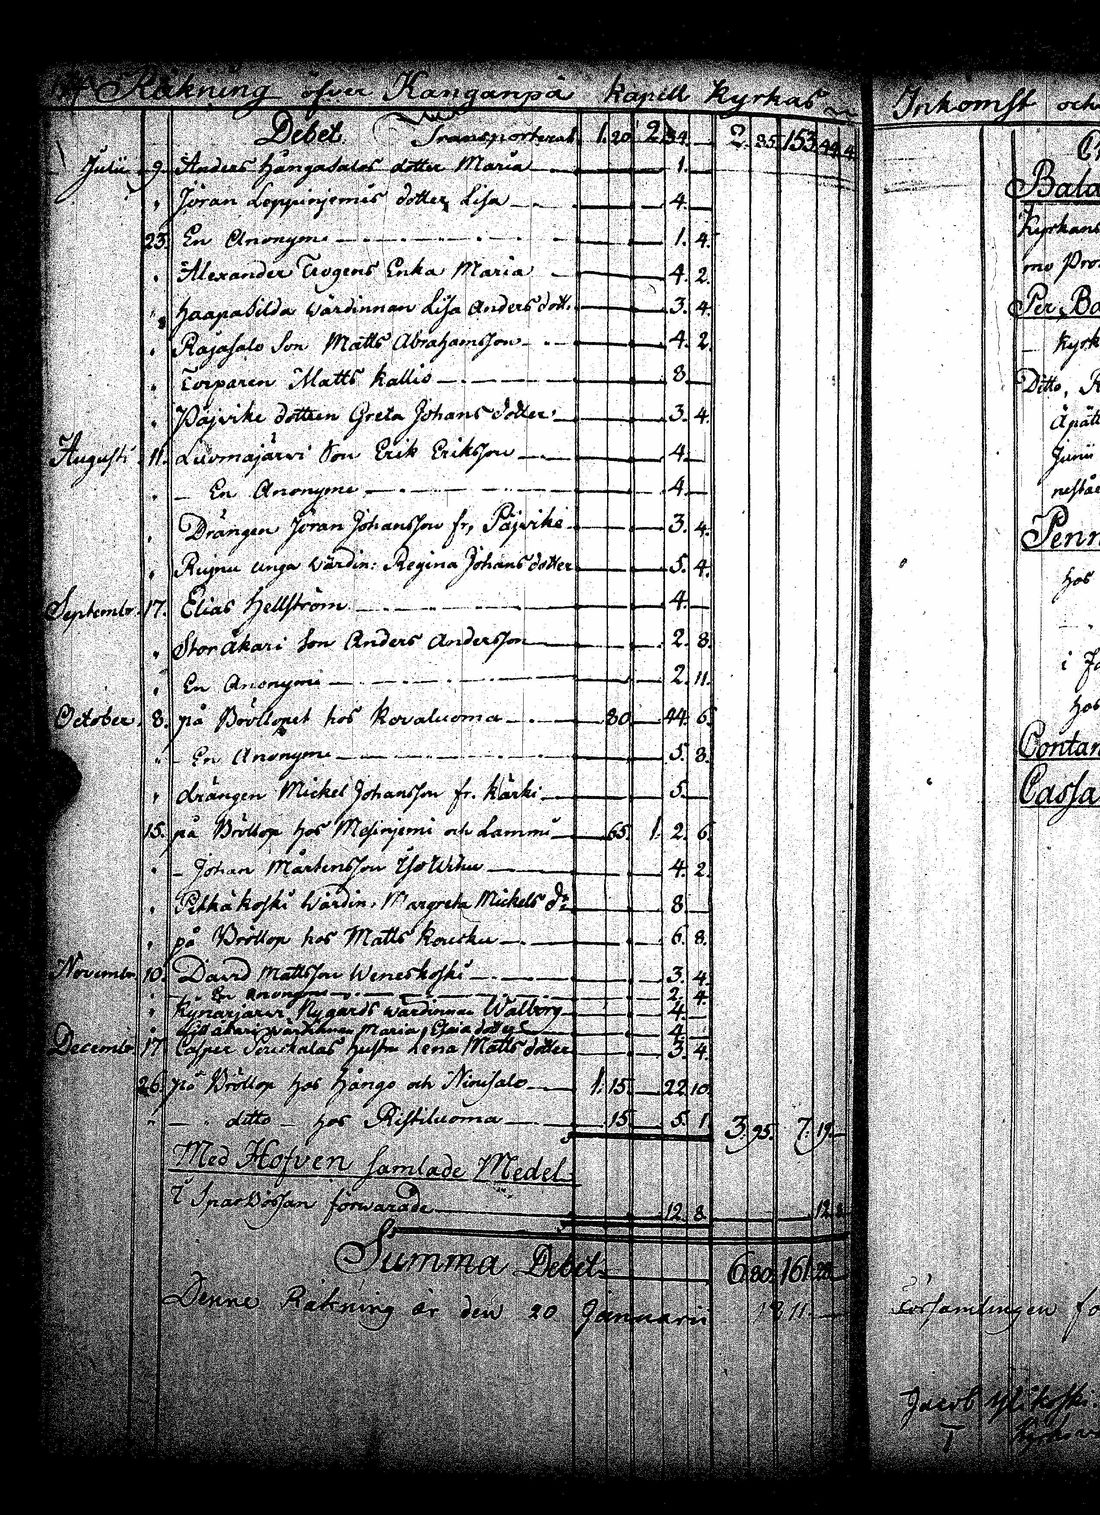 Räkning öfver Kanganpä kapell Kyrkas
Debet. Transporterat 1. 20 2. 34. 2. 85. 153. 44. 4
Julii 9. Anders Hångasalos dotter Maria 1.
Jöran Loppinjemis dotter Lisa 4.
23. En Anonyme 1. 4.
Alexander Trogens Enka Maria 4. 2
Haapasilda wärdinnan Lisa Anders dott. 3. 4
Rajasalo Son Matts Abrahamsson 4. 2.
Torparen Matts Kallio 8
Päjvike dottren Greta Johans dotter 3. 4.
Augusti 11. Luomajärvi Son Erik Eriksson 4.
En Anonyme 4.
Drängen Jöran Johansson fr, Päjvike 3. 4.
unga wärdin: Regina Johans dotter 5. 4.
Septembr. 17. Elias Hellström 4.
Stor åkari Son Anders Andersson 2. 8
En Anonyme 2. 11.
October 8. på Bröllopet hos Kovaluoma 80 44. 6
En Anonyme 5. 8.
drängen Mickel Johansson fr. Kärki 5.
15. på Bröllop hos och Lammi 65. 1. 2. 6
Johan Mårtensson 4. 2
Pitkäkoski wärdin. Margreta Mickels dr 8
på Bröllop hos Matts 6. 8.
Novembr. 10. David Mattsson Weneskoski 3. 4
En Anonyme 2. 4
Kynärjärvi Nygårds wärdinnan Walborg 4.
åkari wärdinnan Maria dotter 4.
Decembr. 17 Casper hustru Lena Matts dotter 3. 4.
26. på Bröllop hos Hångo och Niousalo 1. 15. 22. 10
ditto hos Ristiluoma 15. 5. 1 3. 95. 7. 19.
Med Hofven samlade Medel
i Sparbössan förwarade 12. 8 12. 8
Summa Debet 6. 80. 161. 28
Denne Räkning är den 20 Januarii 1811.
Inkomst och
Bala
Kyrkans
mo Pro
Per Ba
Kyrk
Ditto, R
Apätt
Junii
Penn
hos
i Ja
hos
Contan
Cassa
Församlingen fö
Jacob Ylikoski.